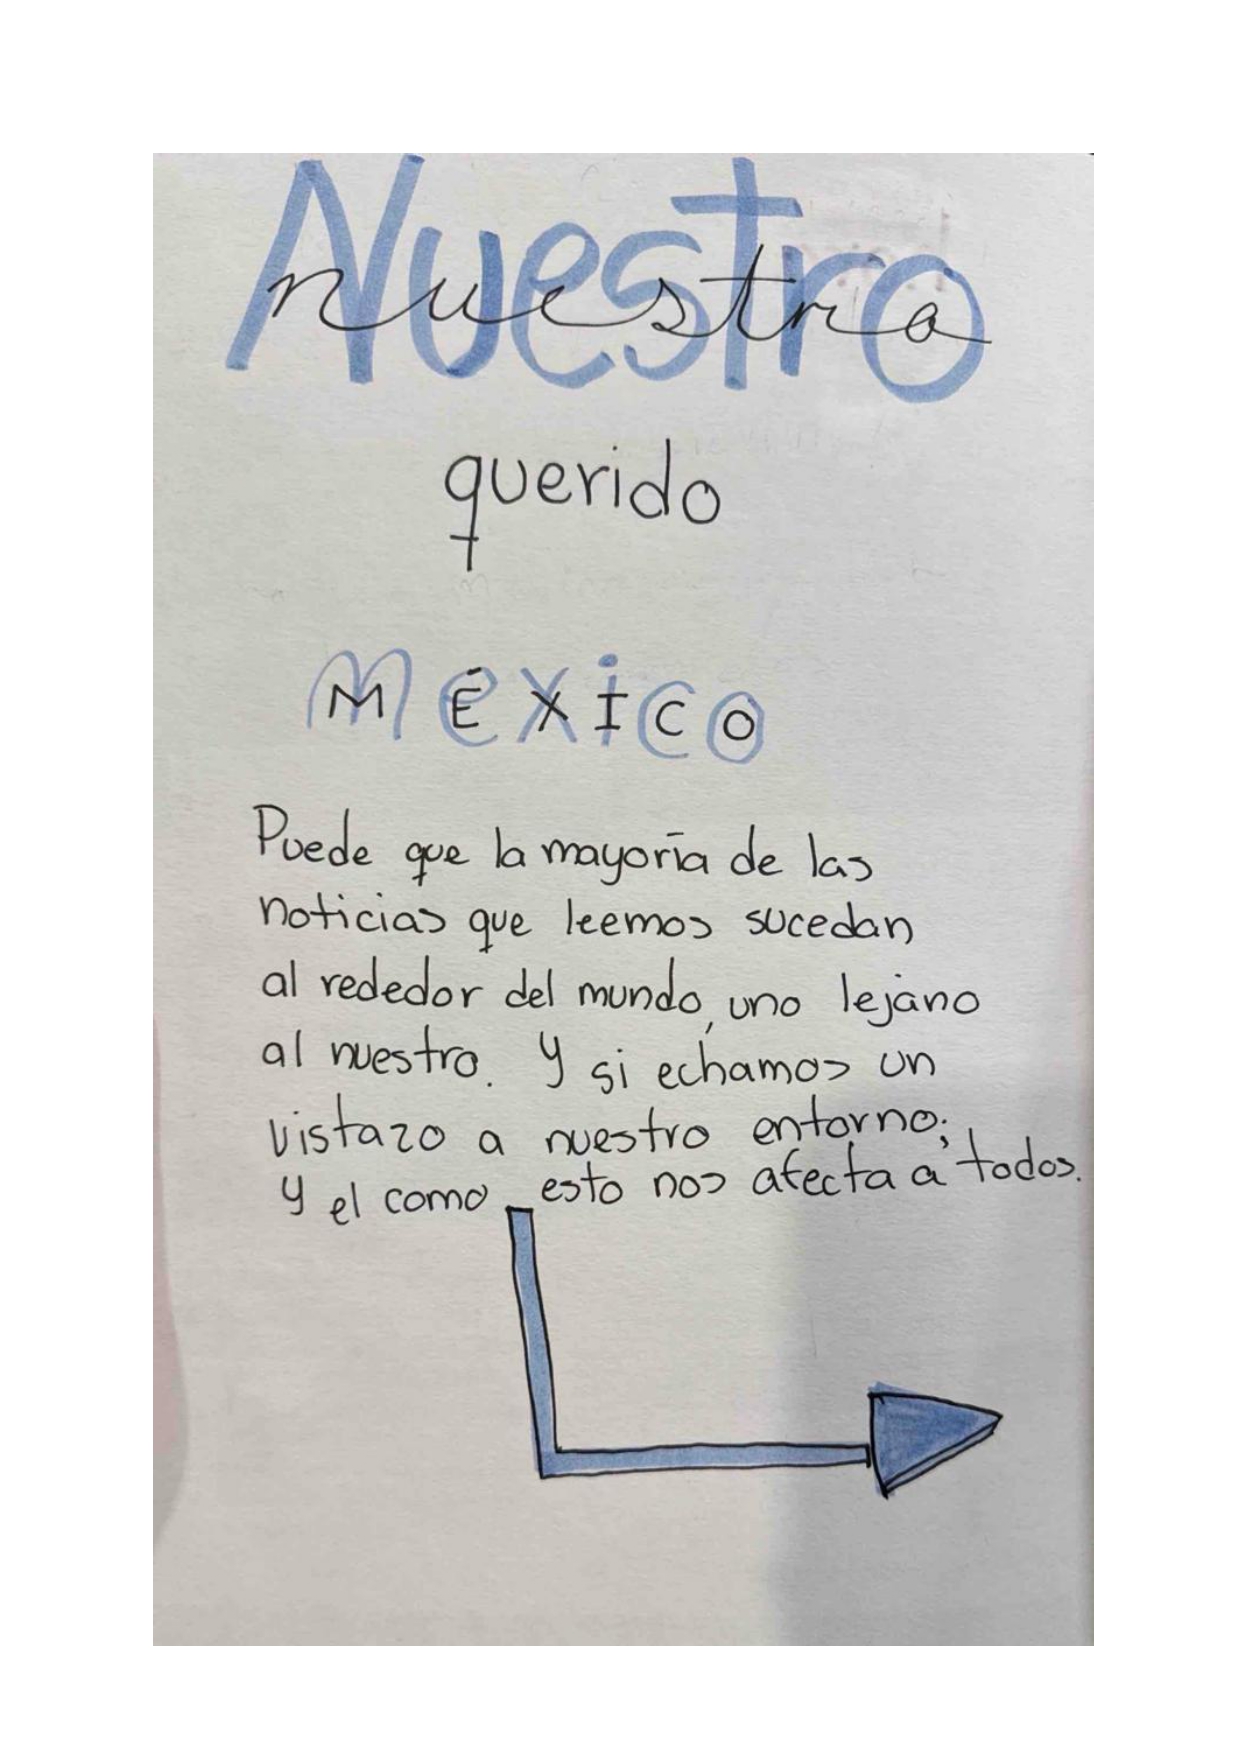 Nuestro
nuestro
querido
MÉXICO
Puede que la mayoría de las
noticias que leemos sucedan
al rededor del mundo, uno lejano
al nuestro. Y si echamos un
vistazo a nuestro entorno;
y el como esto nos afecta a todos.